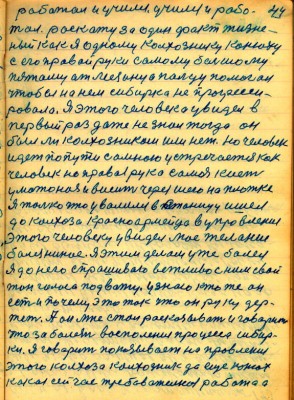 работал и училил, училил и рабо- 41
тал. раскажу за один факт жизне-
ный как я одному колхознику конюху
с его правой руки самому большому
пятому от мезинца пальцу помогал
чтобы на нем сибирка не прогресси-
ровала. Я этого человека увидел в
первый раз даже не знал тогда он
был ли колхозником или нет. Но человек
идет по пути самною устречается как
человек но правая рука самой кист
умотоная и висит через шею на платке
Я только что увалили в шел
до колхоза красноармейца в управления
этого человеку увидел мое желания
балезненое. Я этим делом уже болел
Я до него спрашиваю вежливо с ним свой
тон голоса подвожу. узнаю кто же он
есть и почему это так что он руку дер-
жет. А он мне стал расказывать и говорит
что заболел восполения процеса сибир-
ки. Я говорит показывает на провления
этого колхоза колхозник да еще конюх
какая сейчас требователня работа а